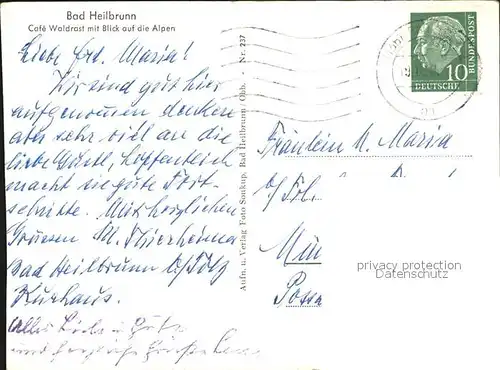 Bad Heilbrunn
Café Waldrast mit Blick auf die Alpen
Liebe frd. Maria!
Wir sind gut hier
aufgenommen denke
aber sehr viel an die
liebe hoffentlich
macht sie gute Fort-
schritte. Mit herzlichen
Grüssen M. Thierheima
Bad Heilbrunn b/Tölz
Kurhaus.
alles Liebe u. Gute
und herzliche Grüße
Aufn. u. Verlag Foto Sonkup, Bad Heilbrunn/Obb. - Nr. 237
10
DEUTSCHE
BUNDESPOST
Fräulein M. Maria
b/Fol.
Mün
Possa
privacy protection
Datenschutz